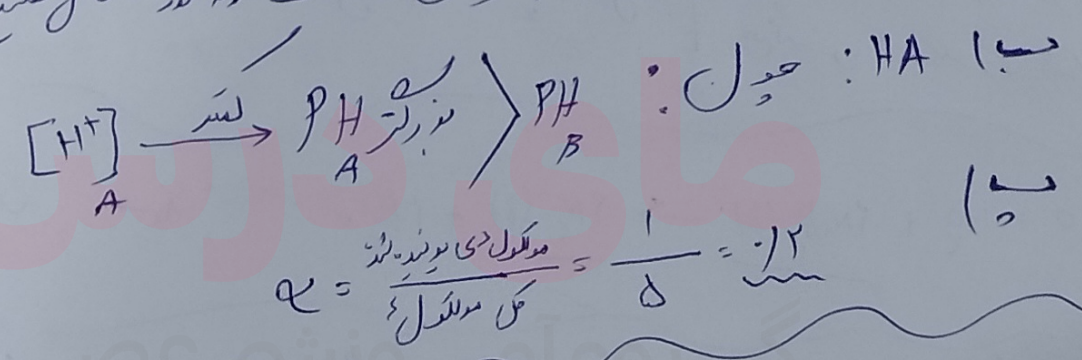 ب) HA : چون :
[H+]A کمتر → PH A بزرگتر > PH B
پ)
α = مولکول های یونیده شده / کل مولکول ها = ۱ / ۵ = ۰/۲
مای درس